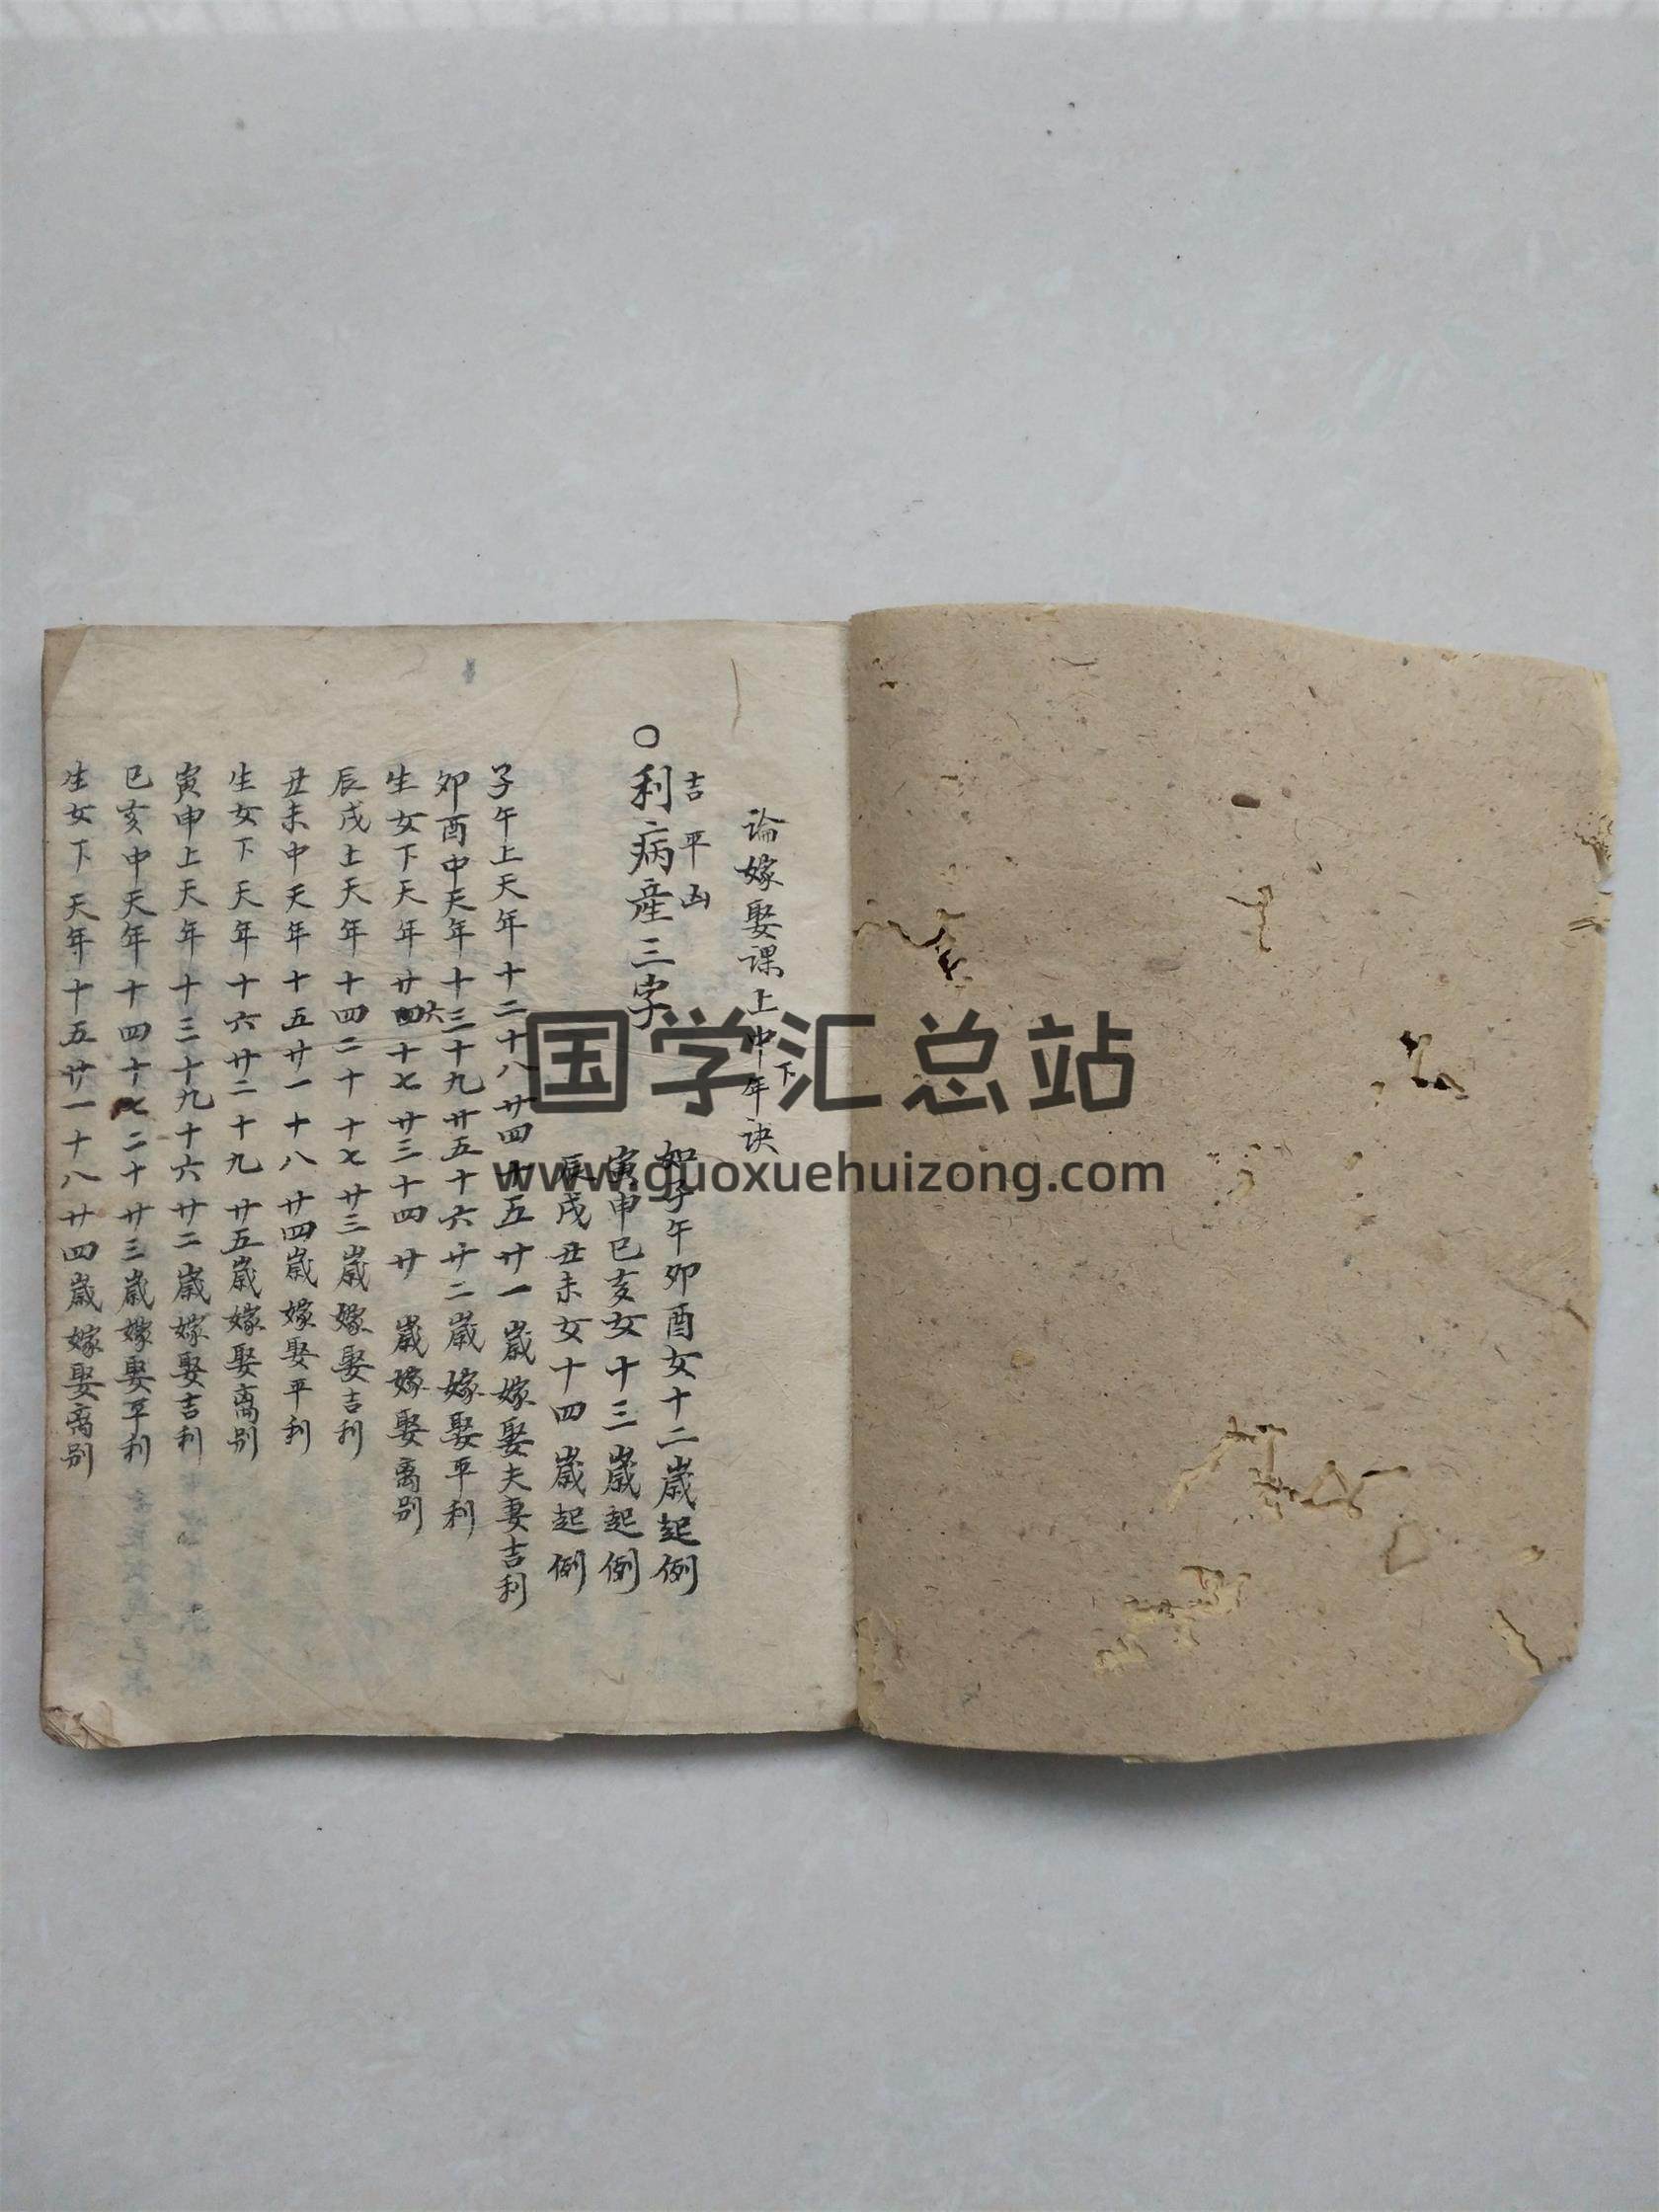 論嫁娶課上中下年訣
吉 平 凶
○利病産三字
如子午卯酉女十二歲起例
寅申巳亥女十三歲起例
辰戌丑未女十四歲起例
子午上天年十二十八廿四十五廿一歲嫁娶夫妻吉利
卯酉中天年十三十九廿五十六廿二歲嫁娶平利
生女下天年廿六十七廿三十四廿歲嫁娶离别
辰戌上天年十四二十十七廿三歲嫁娶吉利
丑未中天年十五廿一十八廿四歲嫁娶平利
生女下天年十六廿二十九廿五歲嫁娶离别
寅申上天年十三十九十六廿二歲嫁娶吉利
巳亥中天年十四十七二十廿三歲嫁娶平利
生女下天年十五廿一十八廿四歲嫁娶离别
国学汇总站
www.guoxuehuizong.com